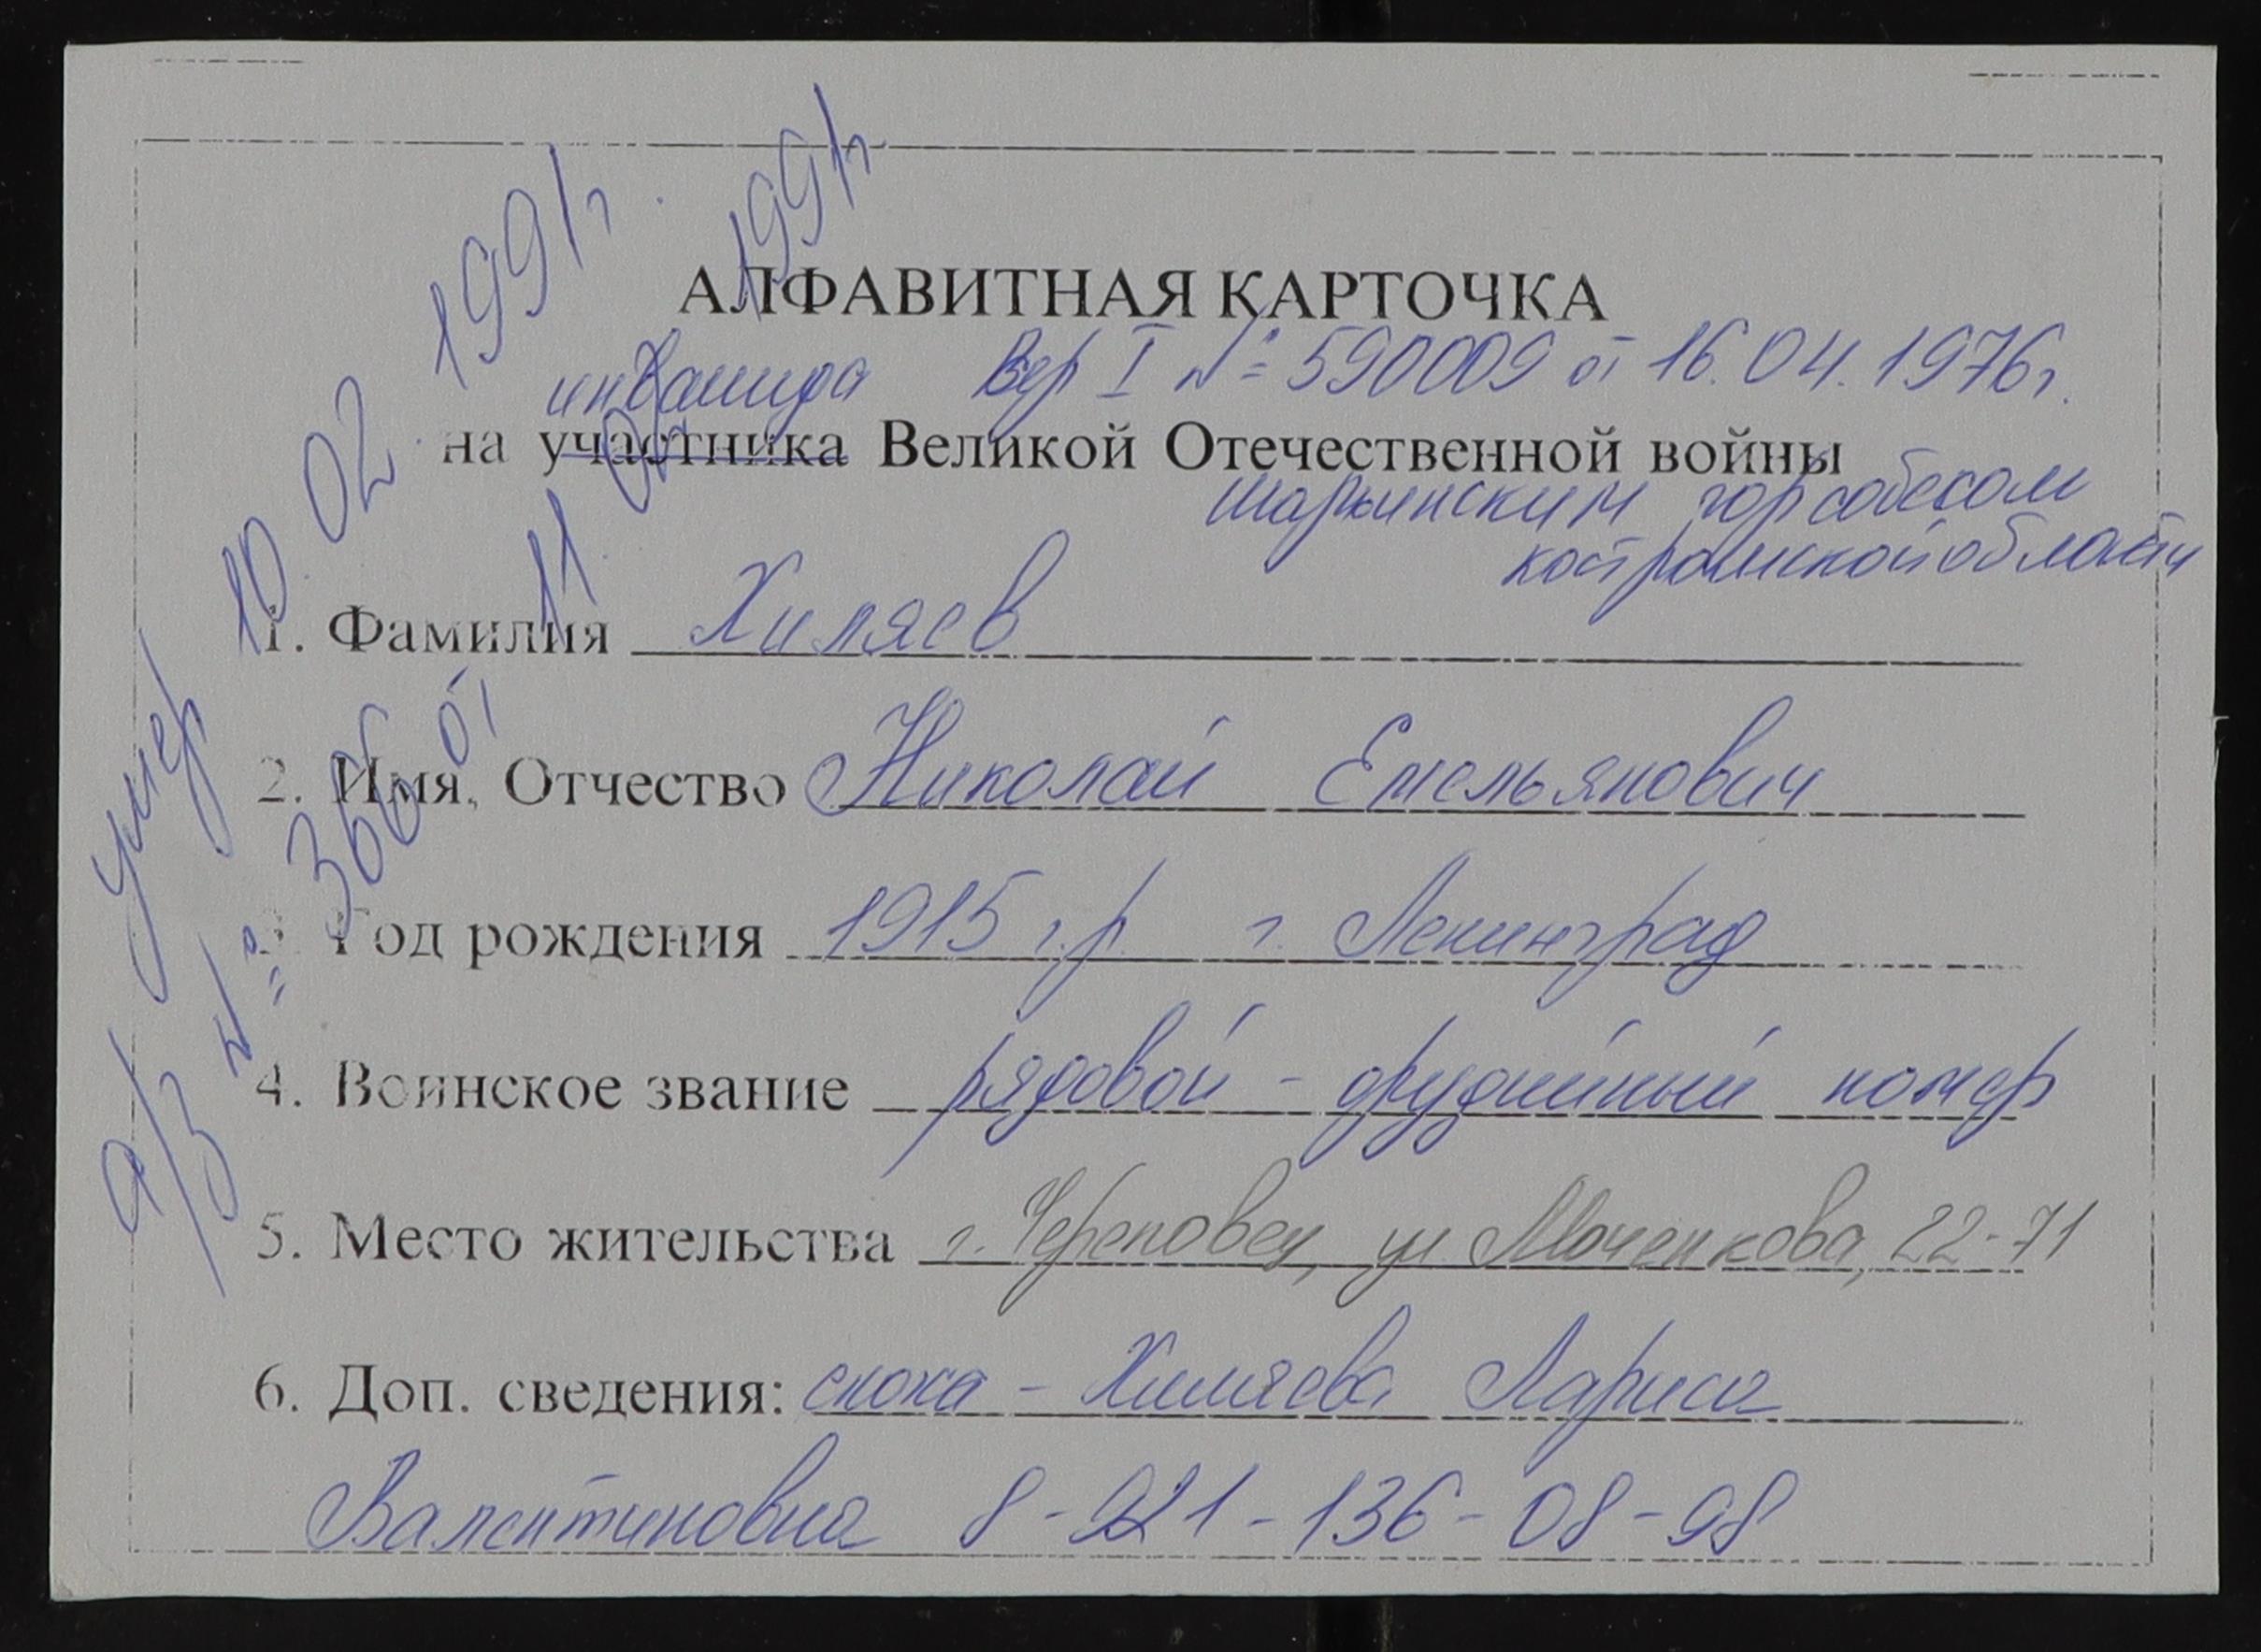 АЛФАВИТНАЯ КАРТОЧКА
инвалида Вер I № 590009 от 16.04.1976г.
на участника Великой Отечественной войны
шарьинским горсобесом
костромской области
1. Фамилия Хиляев
2. Имя, Отчество Николай Емельянович
3. Год рождения 1915 г.р. г. Ленинград
4. Воинское звание рядовой - орудийный номер
5. Место жительства г. Череповец, ул Моченкова, 22-71
6. Доп. сведения: сноха - Хиляева Лариса
Валентиновна 8-921-136-08-98
умер 10.02.1991г.
а/з № 366 от 11.02.1991г.